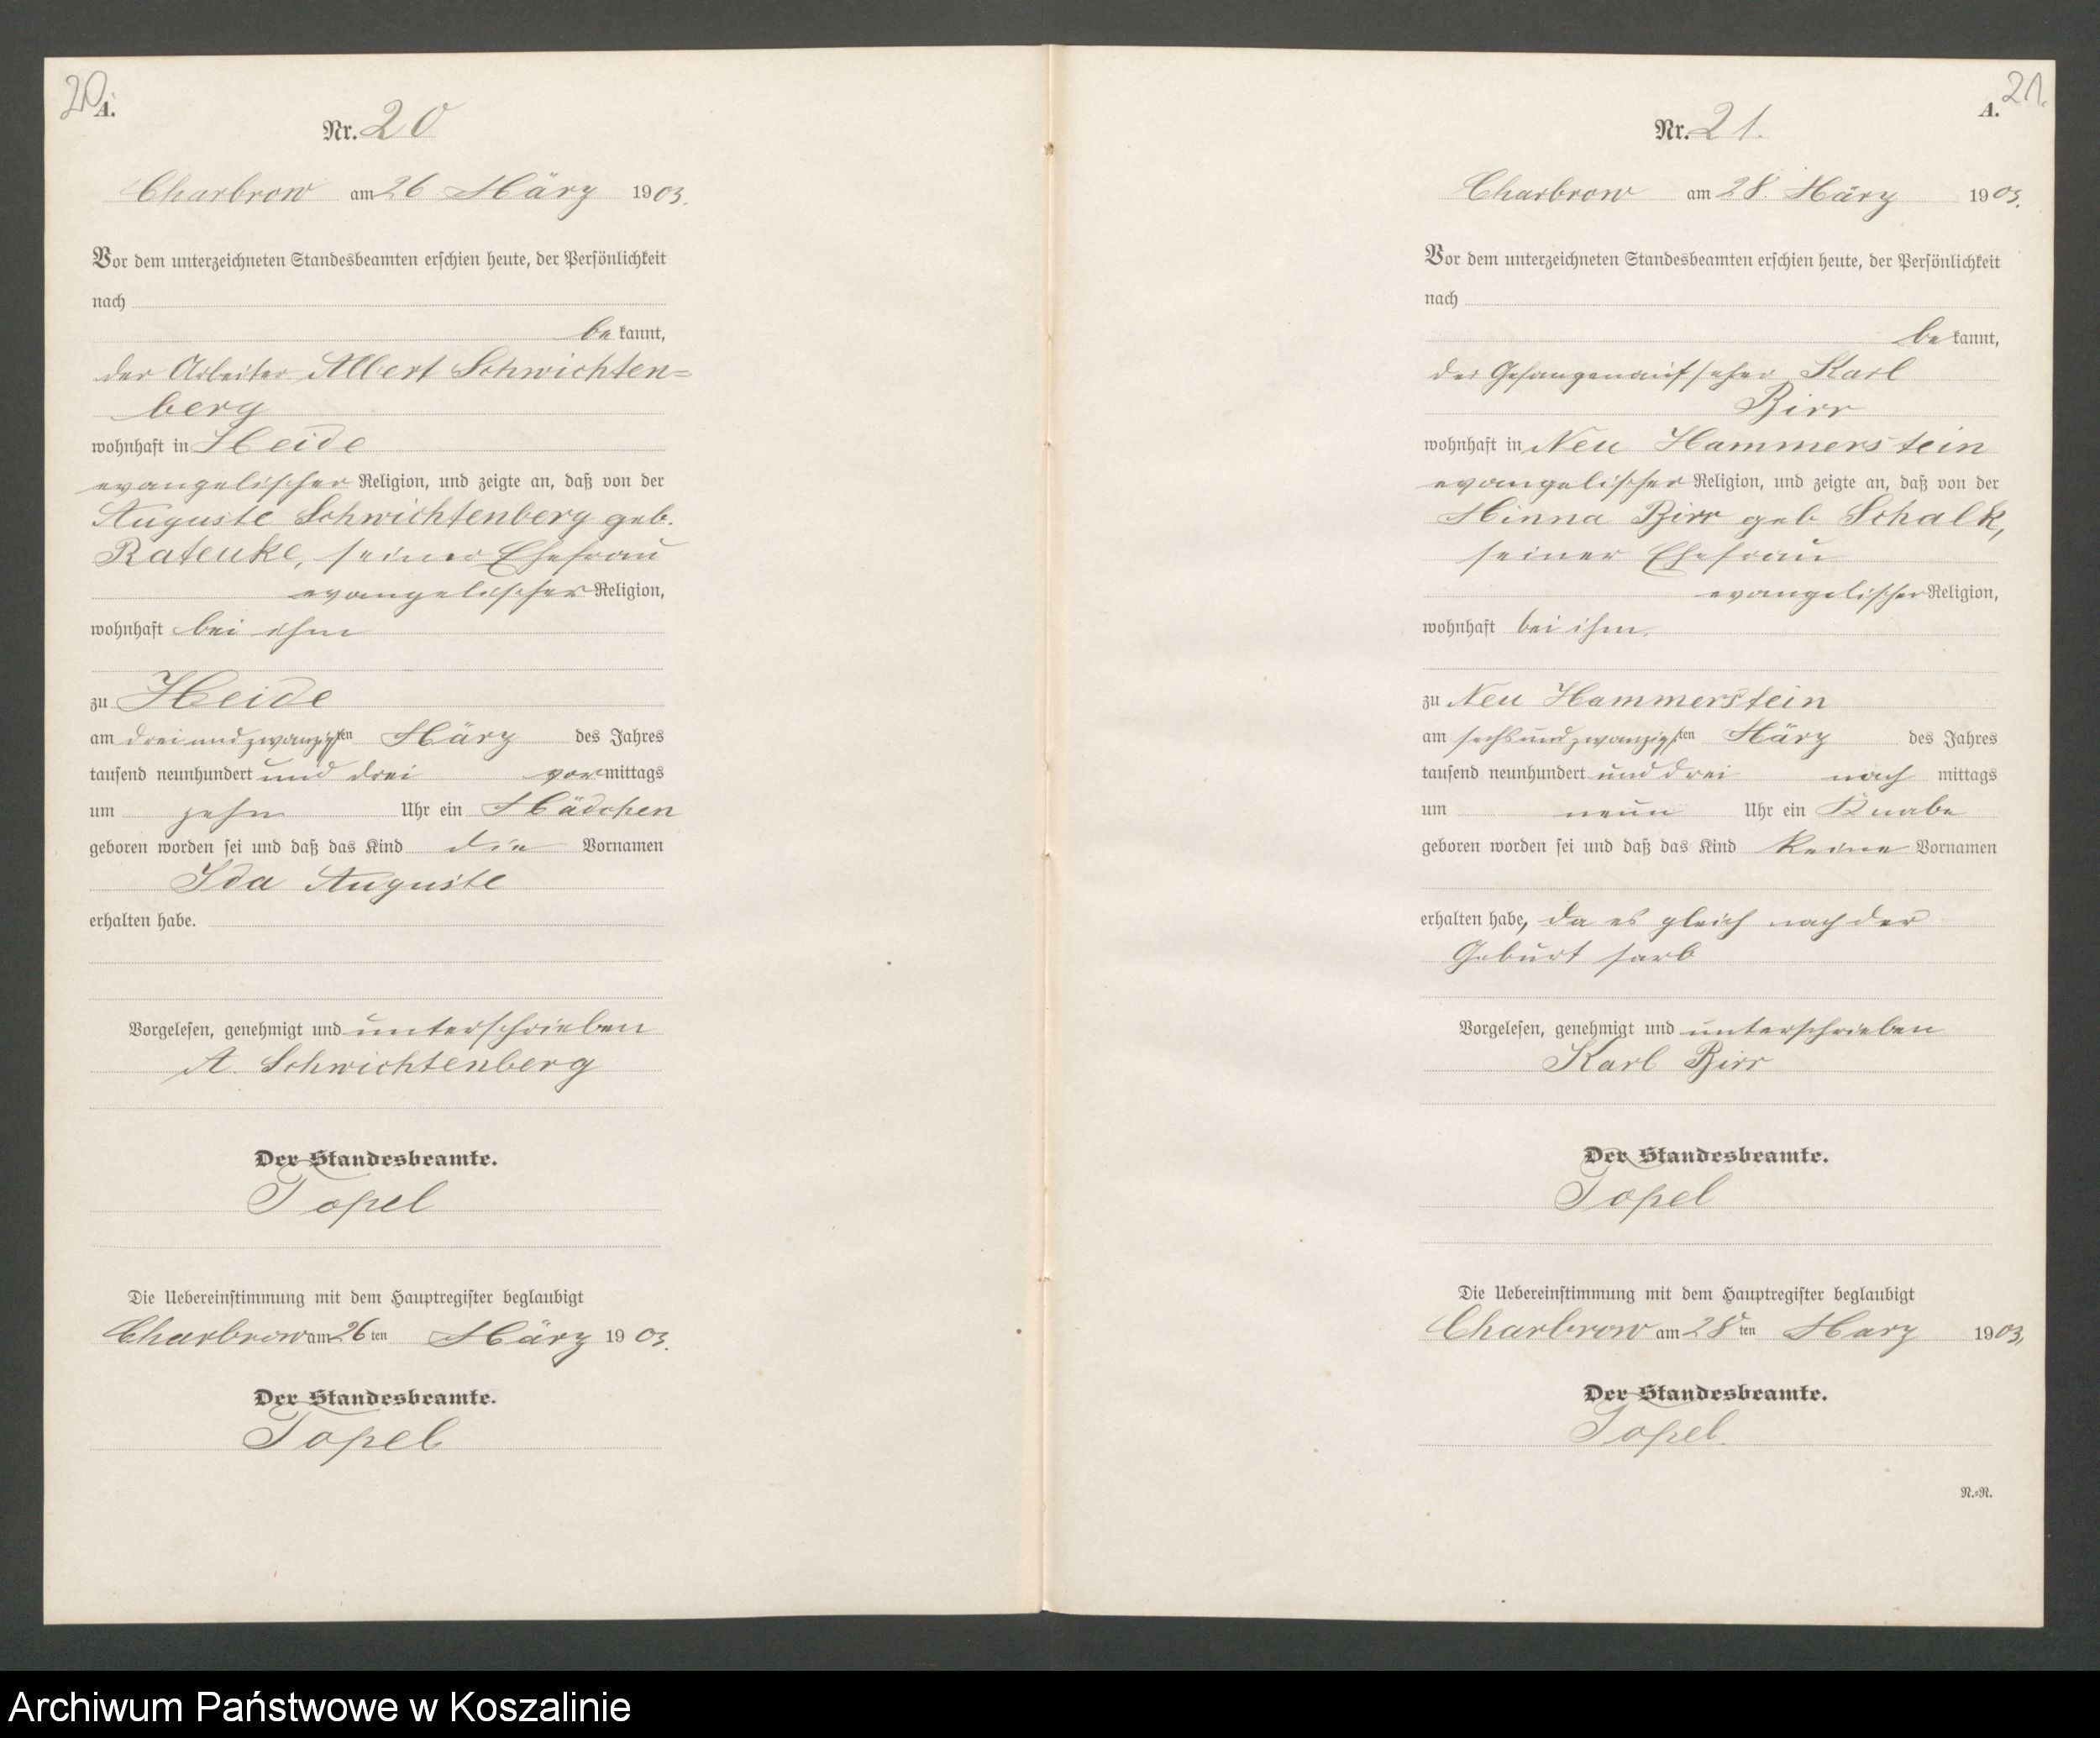 20
A.
Nr. 20
Charbrow am 26 März 1903.
Vor dem unterzeichneten Standesbeamten erschien heute, der Persönlichkeit
nach
be kannt,
der Arbeiter Albert Schwichten=
berg
wohnhaft in Heide
evangelischer Religion, und zeigte an, daß von der
Auguste Schwichtenberg geb.
Ratenke, seiner Ehefrau
evangelischer Religion,
wohnhaft bei ihm
zu Heide
am dreiundzwanzigsten März des Jahres
tausend neunhundert und drei vormittags
um zehn Uhr ein Mädchen
geboren worden sei und daß das Kind die Vornamen
Ida Auguste
erhalten habe.
Vorgelesen, genehmigt und unterschrieben
A. Schwichtenberg
Der Standesbeamte.
Topel
Die Uebereinstimmung mit dem Hauptregister beglaubigt
Charbrow am 26 ten März 1903.
Der Standesbeamte.
Topel
21.
A.
Nr. 21.
Charbrow am 28. März 1903.
Vor dem unterzeichneten Standesbeamten erschien heute, der Persönlichkeit
nach
be kannt,
der Gefangenaufseher Karl
Birr
wohnhaft in Neu Hammerstein
evangelischer Religion, und zeigte an, daß von der
Minna Birr geb Schalk,
seiner Ehefrau
evangelischer Religion,
wohnhaft bei ihm.
zu Neu Hammerstein
am sechsundzwanzigsten März des Jahres
tausend neunhundert und drei nach mittags
um neun Uhr ein Knabe
geboren worden sei und daß das Kind keine Vornamen
erhalten habe, da es gleich nach der
Geburt sarb
Vorgelesen, genehmigt und unterschrieben
Karl Birr
Der Standesbeamte.
Topel
Die Uebereinstimmung mit dem Hauptregister beglaubigt
Charbrow am 28 ten Marz 1903,
Der Standesbeamte.
Topel.
N.=R.
Archiwum Państwowe w Koszalinie